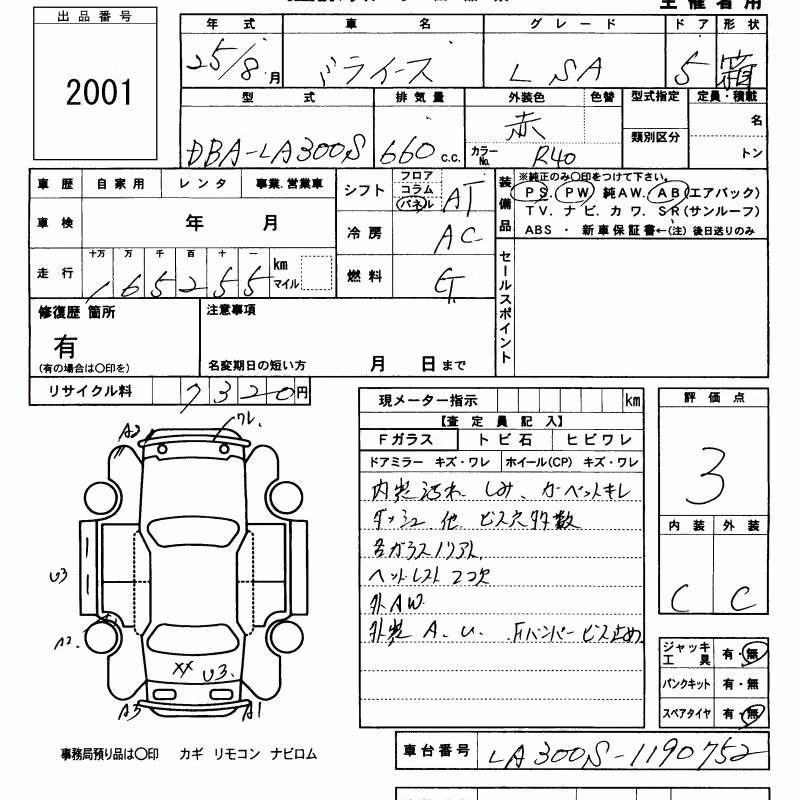 主催者用
出品番号
2001
年式 車名 グレード ドア 形状
25/8月 ドライース L SA 5 箱
型式 排気量 外装色 色替 型式指定 定員・積載
類別区分
DBA-LA300S 660 c.c. 赤 名
カラーNo. R40 トン
車歴 自家用 レンタ 事業.営業車
シフト フロア コラム パネル AT
装備品 ※純正のみ〇印をつけて下さい。
PS. PW 純AW. AB(エアバック)
TV. ナビ. カワ. SR(サンルーフ)
ABS ・ 新車保証書←(注) 後日送りのみ
車検 年 月
冷房 AC
走行 十万 万 千 百 十 一
165255 km マイル
燃料 G
セールスポイント
修復歴 箇所 注意事項
有
(有の場合は〇印を) 名変期日の短い方 月 日まで
リサイクル料 7320円
現メーター指示 km
【査定員記入】
Fガラス トビ石 ヒビワレ
ドアミラー キズ・ワレ ホイール(CP) キズ・ワレ
内装汚れ しみ、カーペットキレ
ダッシュ 他 ビス穴多数
各ガラスノリアト
ヘッドレスト 2コ欠
外AW
外装 A、U、 Fバンパー ビス止め
評価点
3
内装 外装
C C
A2 ワレ.
U3
A2.
XX U3.
A3 A1
ジャッキ工具 有・無
パンクキット 有・無
スペアタイヤ 有・無
事務局預り品は〇印 カギ リモコン ナビロム
車台番号 LA300S-1190752